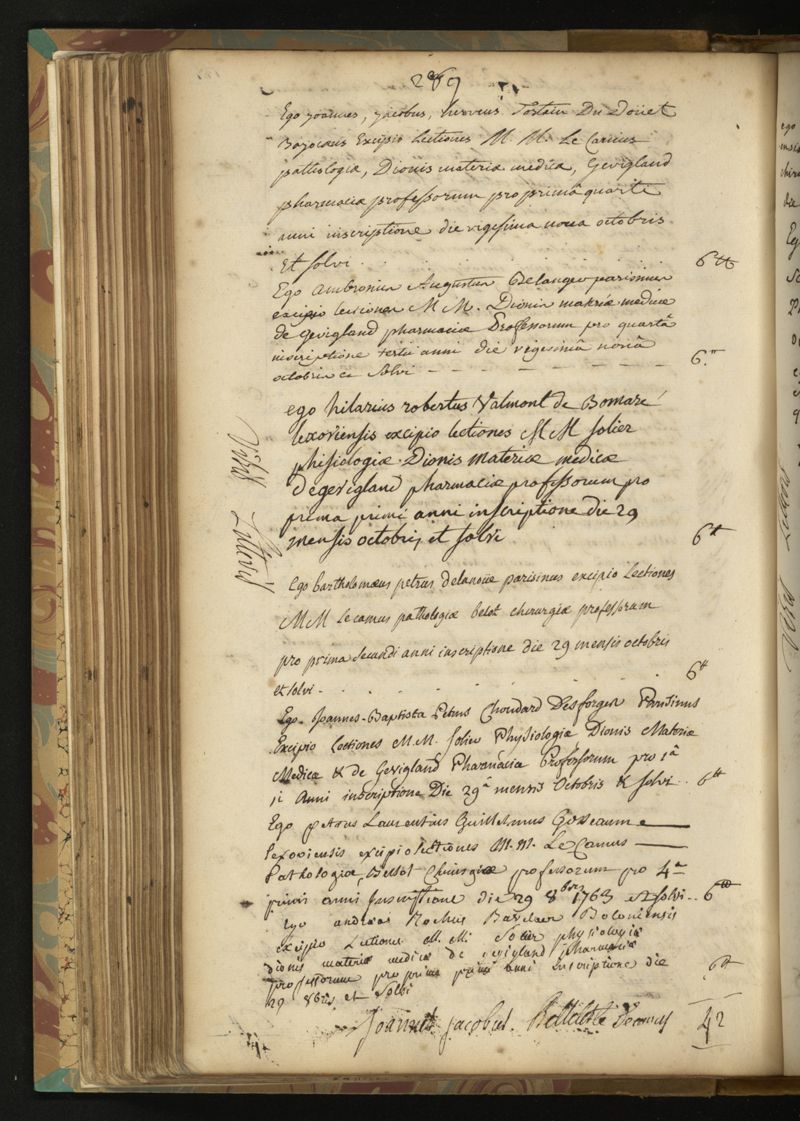 269
Ego joannes, jacobus, herveus Tostain Du Doüet
Bajocaeus Excipio Lectiones M. M. Le Camus
pathologiæ, Dionis materiæ medicæ, Gevigland
pharmaciæ professorum pro primâ quarti
anni inscriptione die vigesima nona octobris
Et solvi . . . . . 6tt
Ego ambrosius Augustus Belanger parisinus
excipio lectiones M M. Dionis materiæ medicæ
de gevigland pharmaciæ Professorum pro quartâ
inscriptione tertii anni die vigesimâ nonâ
octobris et solvi - - - - - 6.tt
ego hilarius robertus Valmont de Bomare
lexoviensis excipio lectiones M M solier
phisiologiæ Dionis materiæ medicæ
degevigland pharmaciæ professorum pro
prima primi anni inscriptione die 29
mensis octobris et solvi 6tt
Ego bartholomæus petrus delanoue parisinus excipio Lectiones
MM Lecamus pathologiæ belot chirurgiæ professorum
pro prima secundi anni inscriptione die 29 mensis octobris
et solvi - . . . . . 6tt
Ego Joannes-Baptista Petrus Choudard Desforges Parisinus
Excipio lectiones M.M. Solier Physiologiæ Dionis Materiæ
Medicæ & de Gevigland Pharmaciæ Professorum pro 1â
1i Anni inscriptione Die 29â mensis Octobris & solvi . 6tt
Ego petrus Laurentius Guillelmus Gosseaume
lexoviensis excipio lectiones M. M. Le Camus
Pathologiæ, Bellot Chirurgiæ professorum pro 4a
primi anni Inscriptione die 29 8bris 1763 et solvi.. 6tt
Ego andreas Rochus Bavelaer Boloniensis
excipio Lectiones M. M. Solier physiologiæ
dionis materiæ medicæ de gevigland pharmaciæ
professorum pro prima primi anni inscriptione die
29 8bris et solvi 6tt
Joannes jacobus. Belleteste Decanus 42